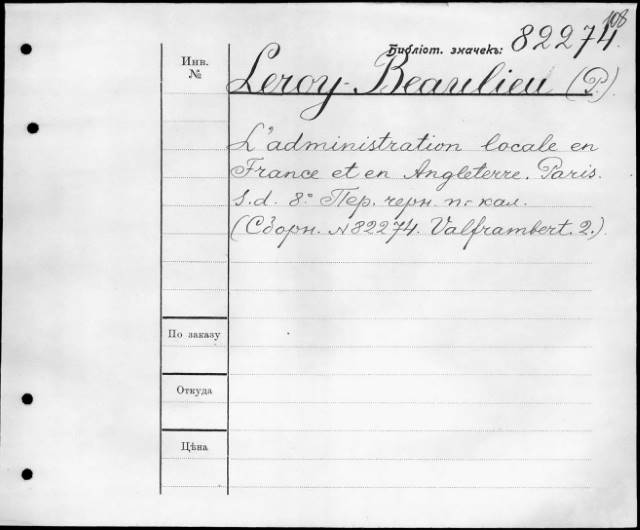 108
Библіот. значекъ: 82274
Инв. №
Leroy-Beaulieu (P.)
L'administration locale en
France et en Angleterre. Paris.
S.d. 8° Пер. черн. п. кал.
(Сборн. №82274. Valframbert. 2.)
По заказу
Откуда
Цѣна